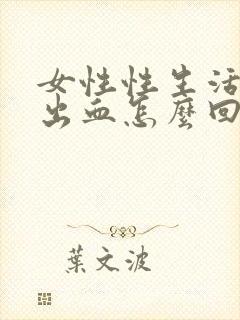 女性性生活
出血怎麼回
葉文波